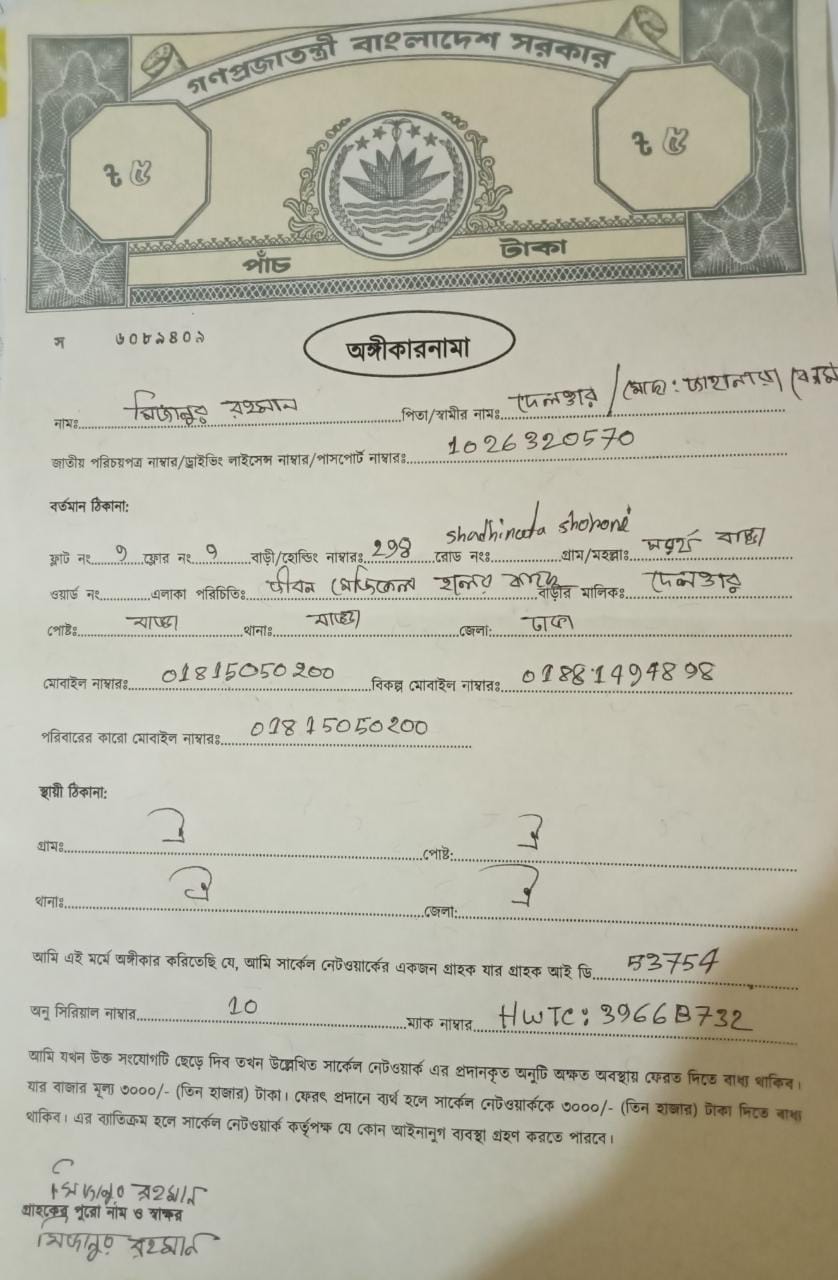 গণপ্রজাতন্ত্রী বাংলাদেশ সরকার
৳ ৫ ৳ ৫
পাঁচ টাকা
স ৬০৮৯৪০৯
অঙ্গীকারনামা
নামঃ মিজানুর রহমান পিতা/স্বামীর নামঃ দেলওার / মোছা:
জাতীয় পরিচয়পত্র নাম্বার/ড্রাইভিং লাইসেন্স নাম্বার/পাসপোর্ট নাম্বারঃ 1026320570
বর্তমান ঠিকানা:
ফ্লাট নং ফ্লোর নং বাড়ী/হোল্ডিং নাম্বারঃ রোড নংঃ shadhinota shoroni গ্রাম/মহল্লাঃ বাড্ডা
ওয়ার্ড নং এলাকা পরিচিতিঃ জীবন মেডিকেল হলের বাড়ীর মালিকঃ দেলওার
পোষ্টঃ বাড্ডা থানাঃ বাড্ডা জেলা: ঢাকা
মোবাইল নাম্বারঃ 01815050200 বিকল্প মোবাইল নাম্বারঃ 01881494898
পরিবারের কারো মোবাইল নাম্বারঃ 01815050200
স্থায়ী ঠিকানা:
গ্রামঃ ঐ পোষ্ট: ঐ
থানাঃ ঐ জেলা: ঐ
আমি এই মর্মে অঙ্গীকার করিতেছি যে, আমি সার্কেল নেটওয়ার্কের একজন গ্রাহক যার গ্রাহক আই ডি 53754
অনু সিরিয়াল নাম্বার 10 ম্যাক নাম্বার HWTC: 3966B732
আমি যখন উক্ত সংযোগটি ছেড়ে দিব তখন উল্লেখিত সার্কেল নেটওয়ার্ক এর প্রদানকৃত অনুটি অক্ষত অবস্থায় ফেরত দিতে বাধ্য থাকিব।
যার বাজার মূল্য ৩০০০/- (তিন হাজার) টাকা। ফেরৎ প্রদানে ব্যর্থ হলে সার্কেল নেটওয়ার্ককে ৩০০০/- (তিন হাজার) টাকা দিতে বাধ্য
থাকিব। এর ব্যতিক্রম হলে সার্কেল নেটওয়ার্ক কর্তৃপক্ষ যে কোন আইনানুগ ব্যবস্থা গ্রহণ করতে পারবে।
মিজানুর রহমান
গ্রাহকের পুরো নাম ও স্বাক্ষর
মিজানুর রহমান